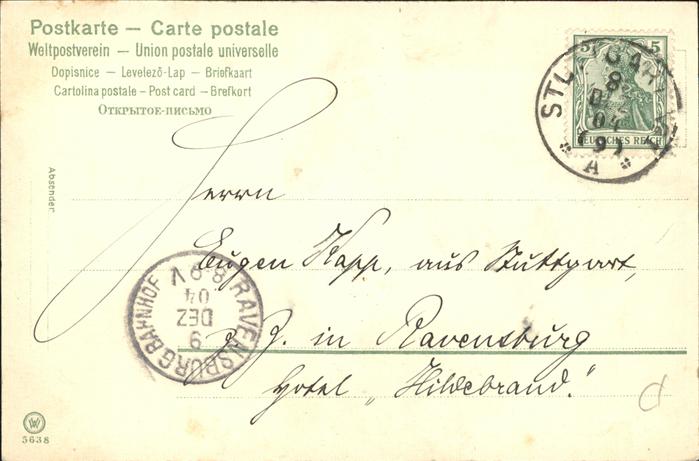 Postkarte — Carte postale
Weltpostverein — Union postale universelle
Dopisnice — Levelező-Lap — Briefkaart
Cartolina postale — Post card — Brefkort
Открытое-письмо
5 5
DEUTSCHES REICH
8
04
A
Absender
Herrn
Eugen Kapp, aus Stuttgart,
z. Z. in Ravensburg
Hotel „Hildebrand."
RAVENSBURG BAHNHOF
9
DEZ
04
8-9 V
W
5638